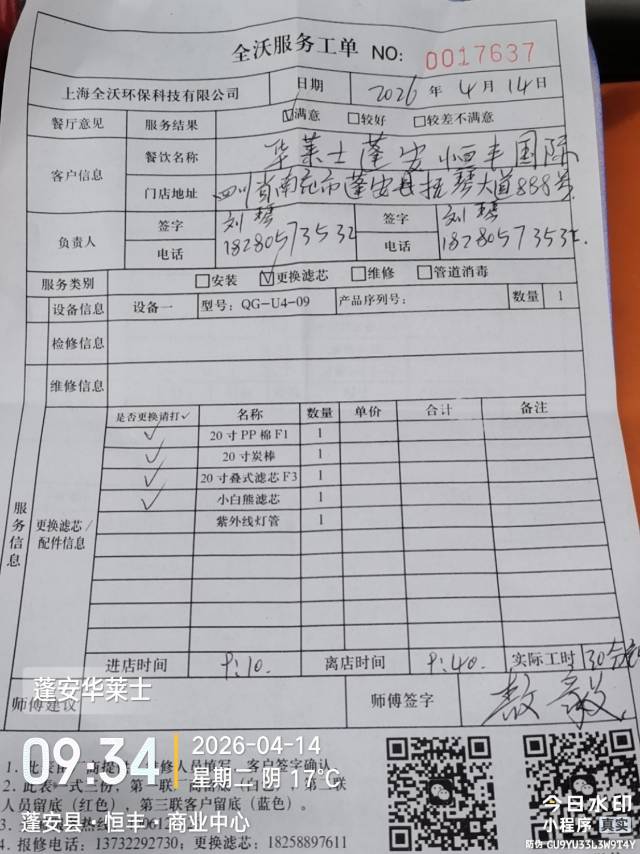 全沃服务工单 NO: 0017637
上海全沃环保科技有限公司 日期 2026 年 4 月 14 日
餐厅意见 服务结果 ☑满意 □较好 □较差不满意
客户信息 餐饮名称 华莱士蓬安恒丰国际
门店地址 四川省南充市蓬安县抚琴大道888号
负责人 签字 刘琴 签字 刘琴
电话 18280573532 电话 1828057353
服务类别 □安装 ☑更换滤芯 □维修 □管道消毒
设备信息 设备一 型号: QG-U4-09 产品序列号: 数量 1
检修信息
维修信息
服务信息
更换滤芯/配件信息
是否更换请打✓ 名称 数量 单价 合计 备注
✓ 20寸PP棉F1 1
✓ 20寸炭棒 1
✓ 20寸叠式滤芯F3 1
✓ 小白熊滤芯 1
紫外线灯管 1
进店时间 9:10. 离店时间 9:40. 实际工时 30分
师傅建议 师傅签字
蓬安华莱士
09:34 2026-04-14
星期二 阴 17℃
蓬安县·恒丰·商业中心
1. 人员填写，客户签字确认
2. 此表一式三份，第一联
人员留底（红色），第三联客户留底（蓝色）。
3.
4. 报修电话: 13732292730; 更换滤芯: 18258897611
今日水印
小程序 真实
防伪 GU9YU33L3W9T4Y